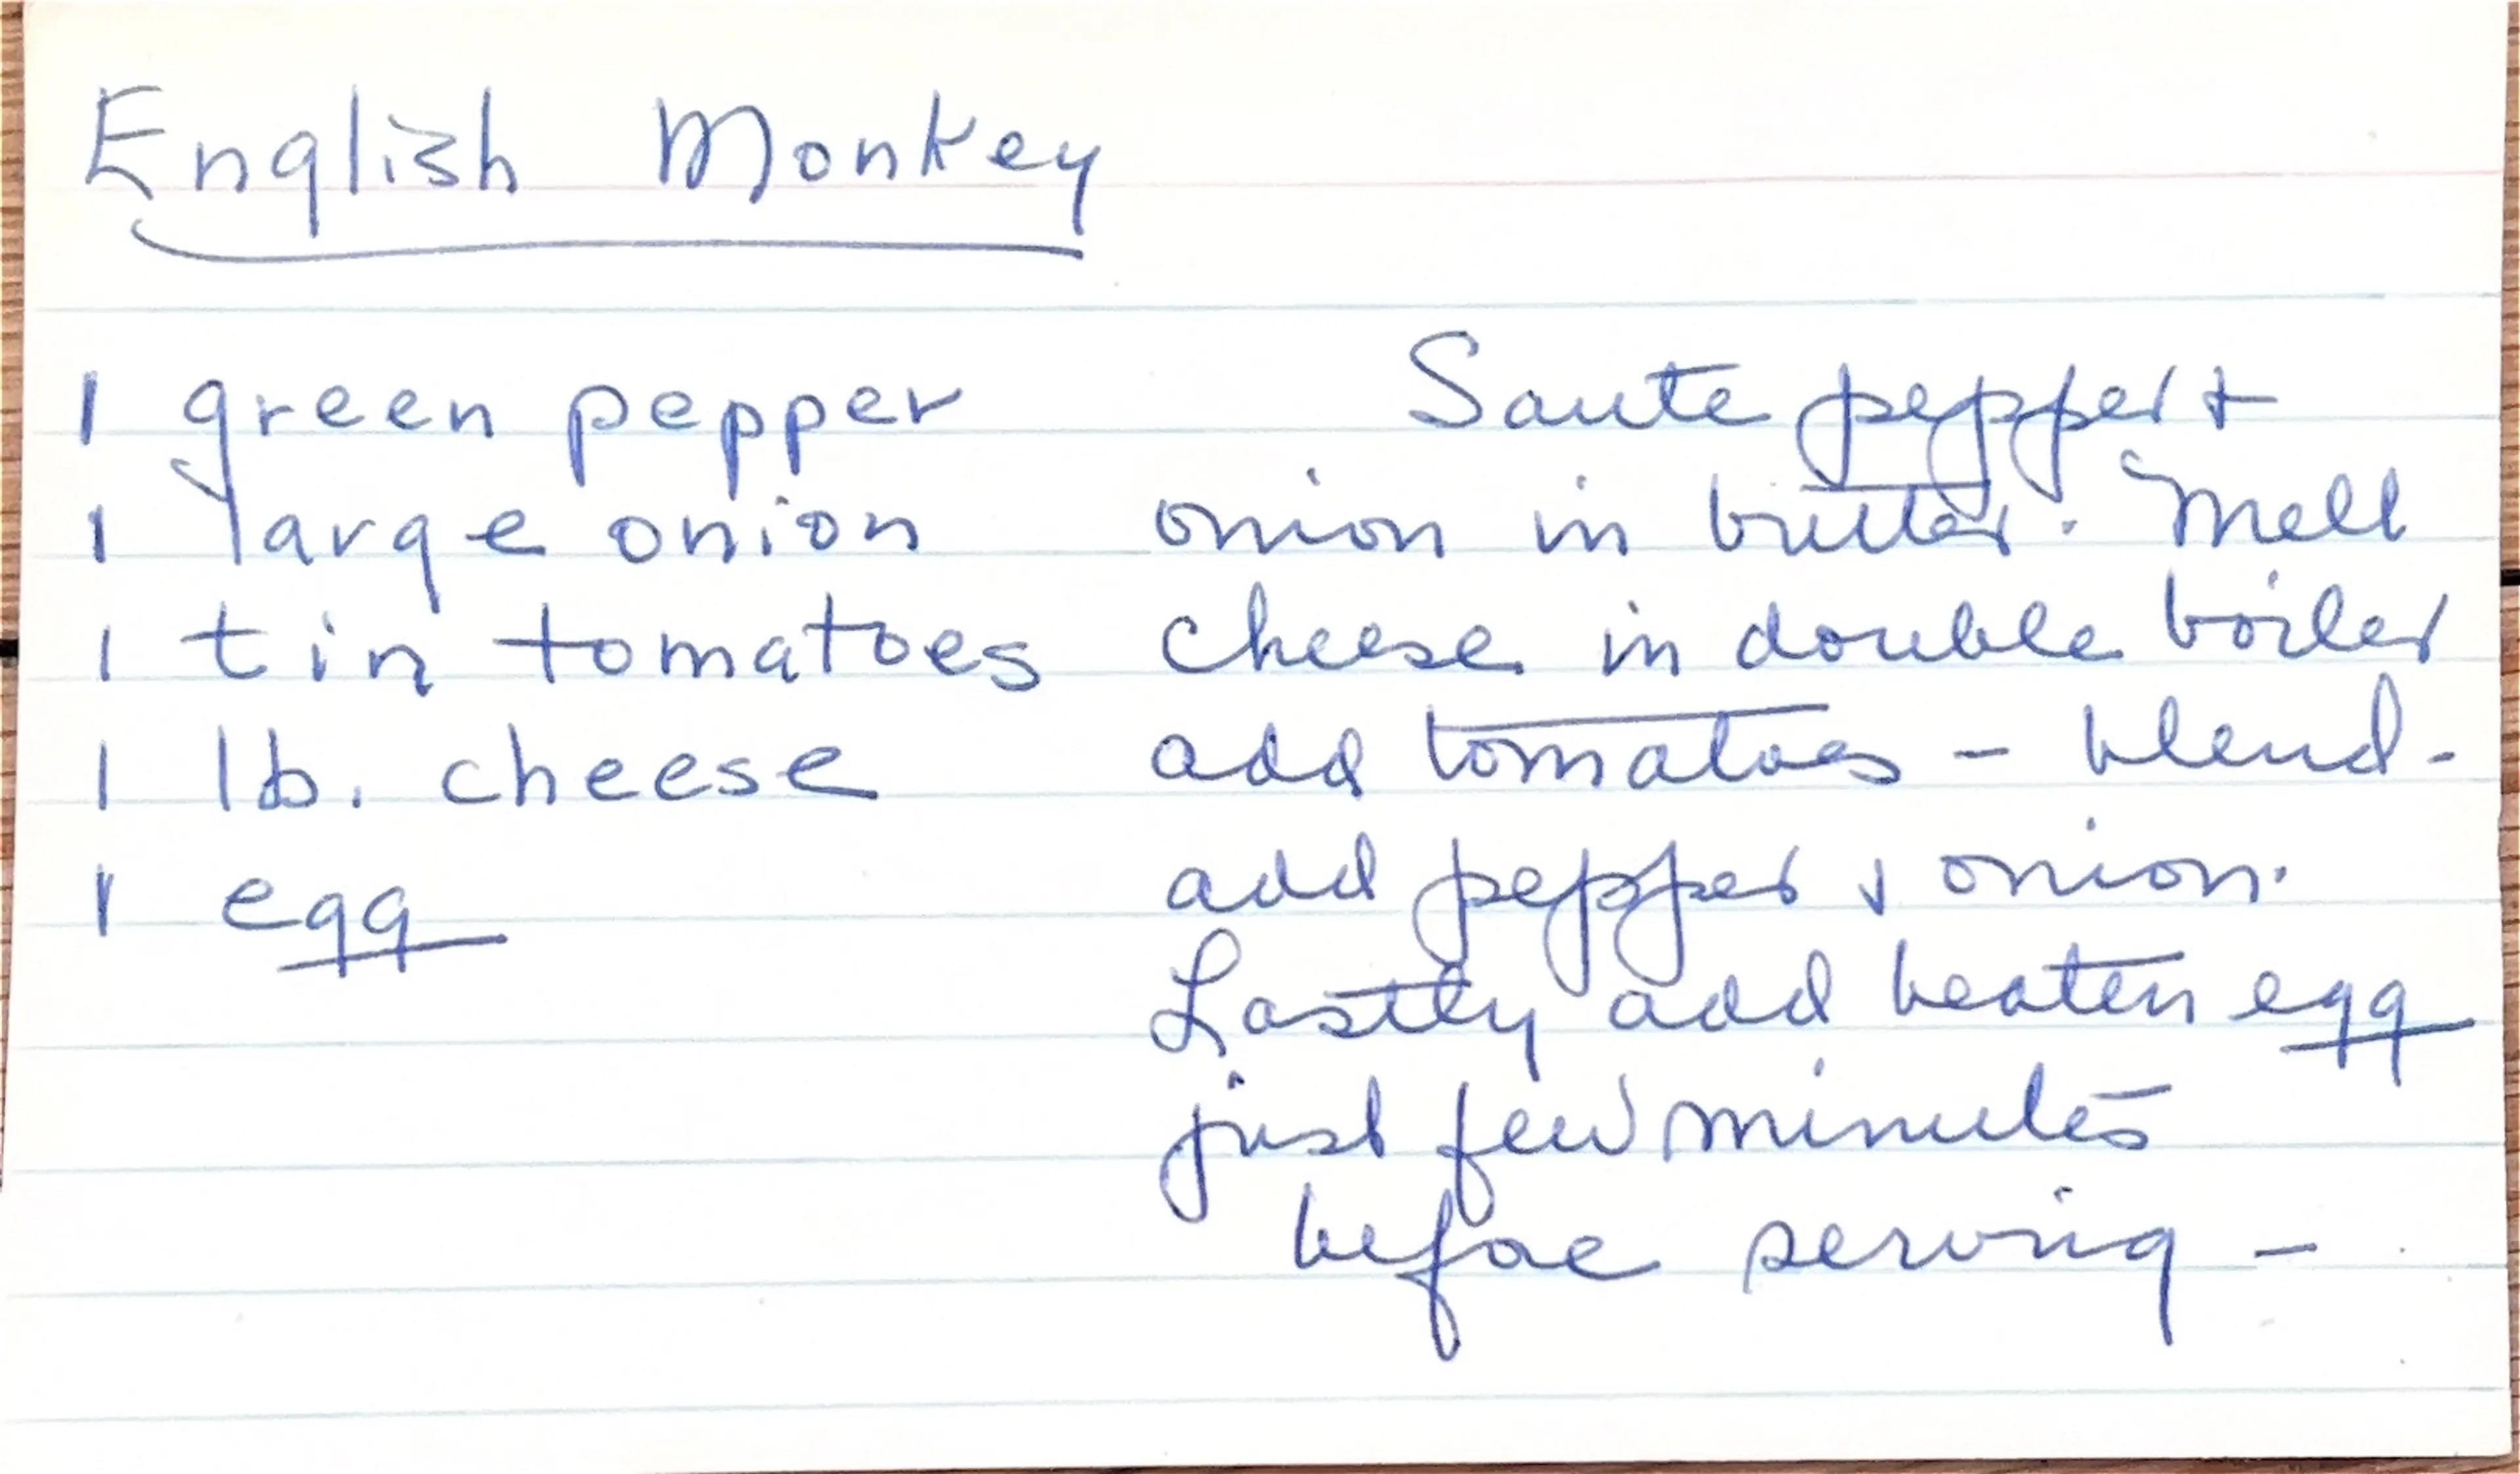 English Monkey
1 green pepper
1 large onion
1 tin tomatoes
1 lb. cheese
1 egg
Saute pepper +
onion in butter. Melt
cheese in double boiler
add tomatoes - blend -
add pepper & onion.
Lastly add beaten egg
just few minutes
before serving -